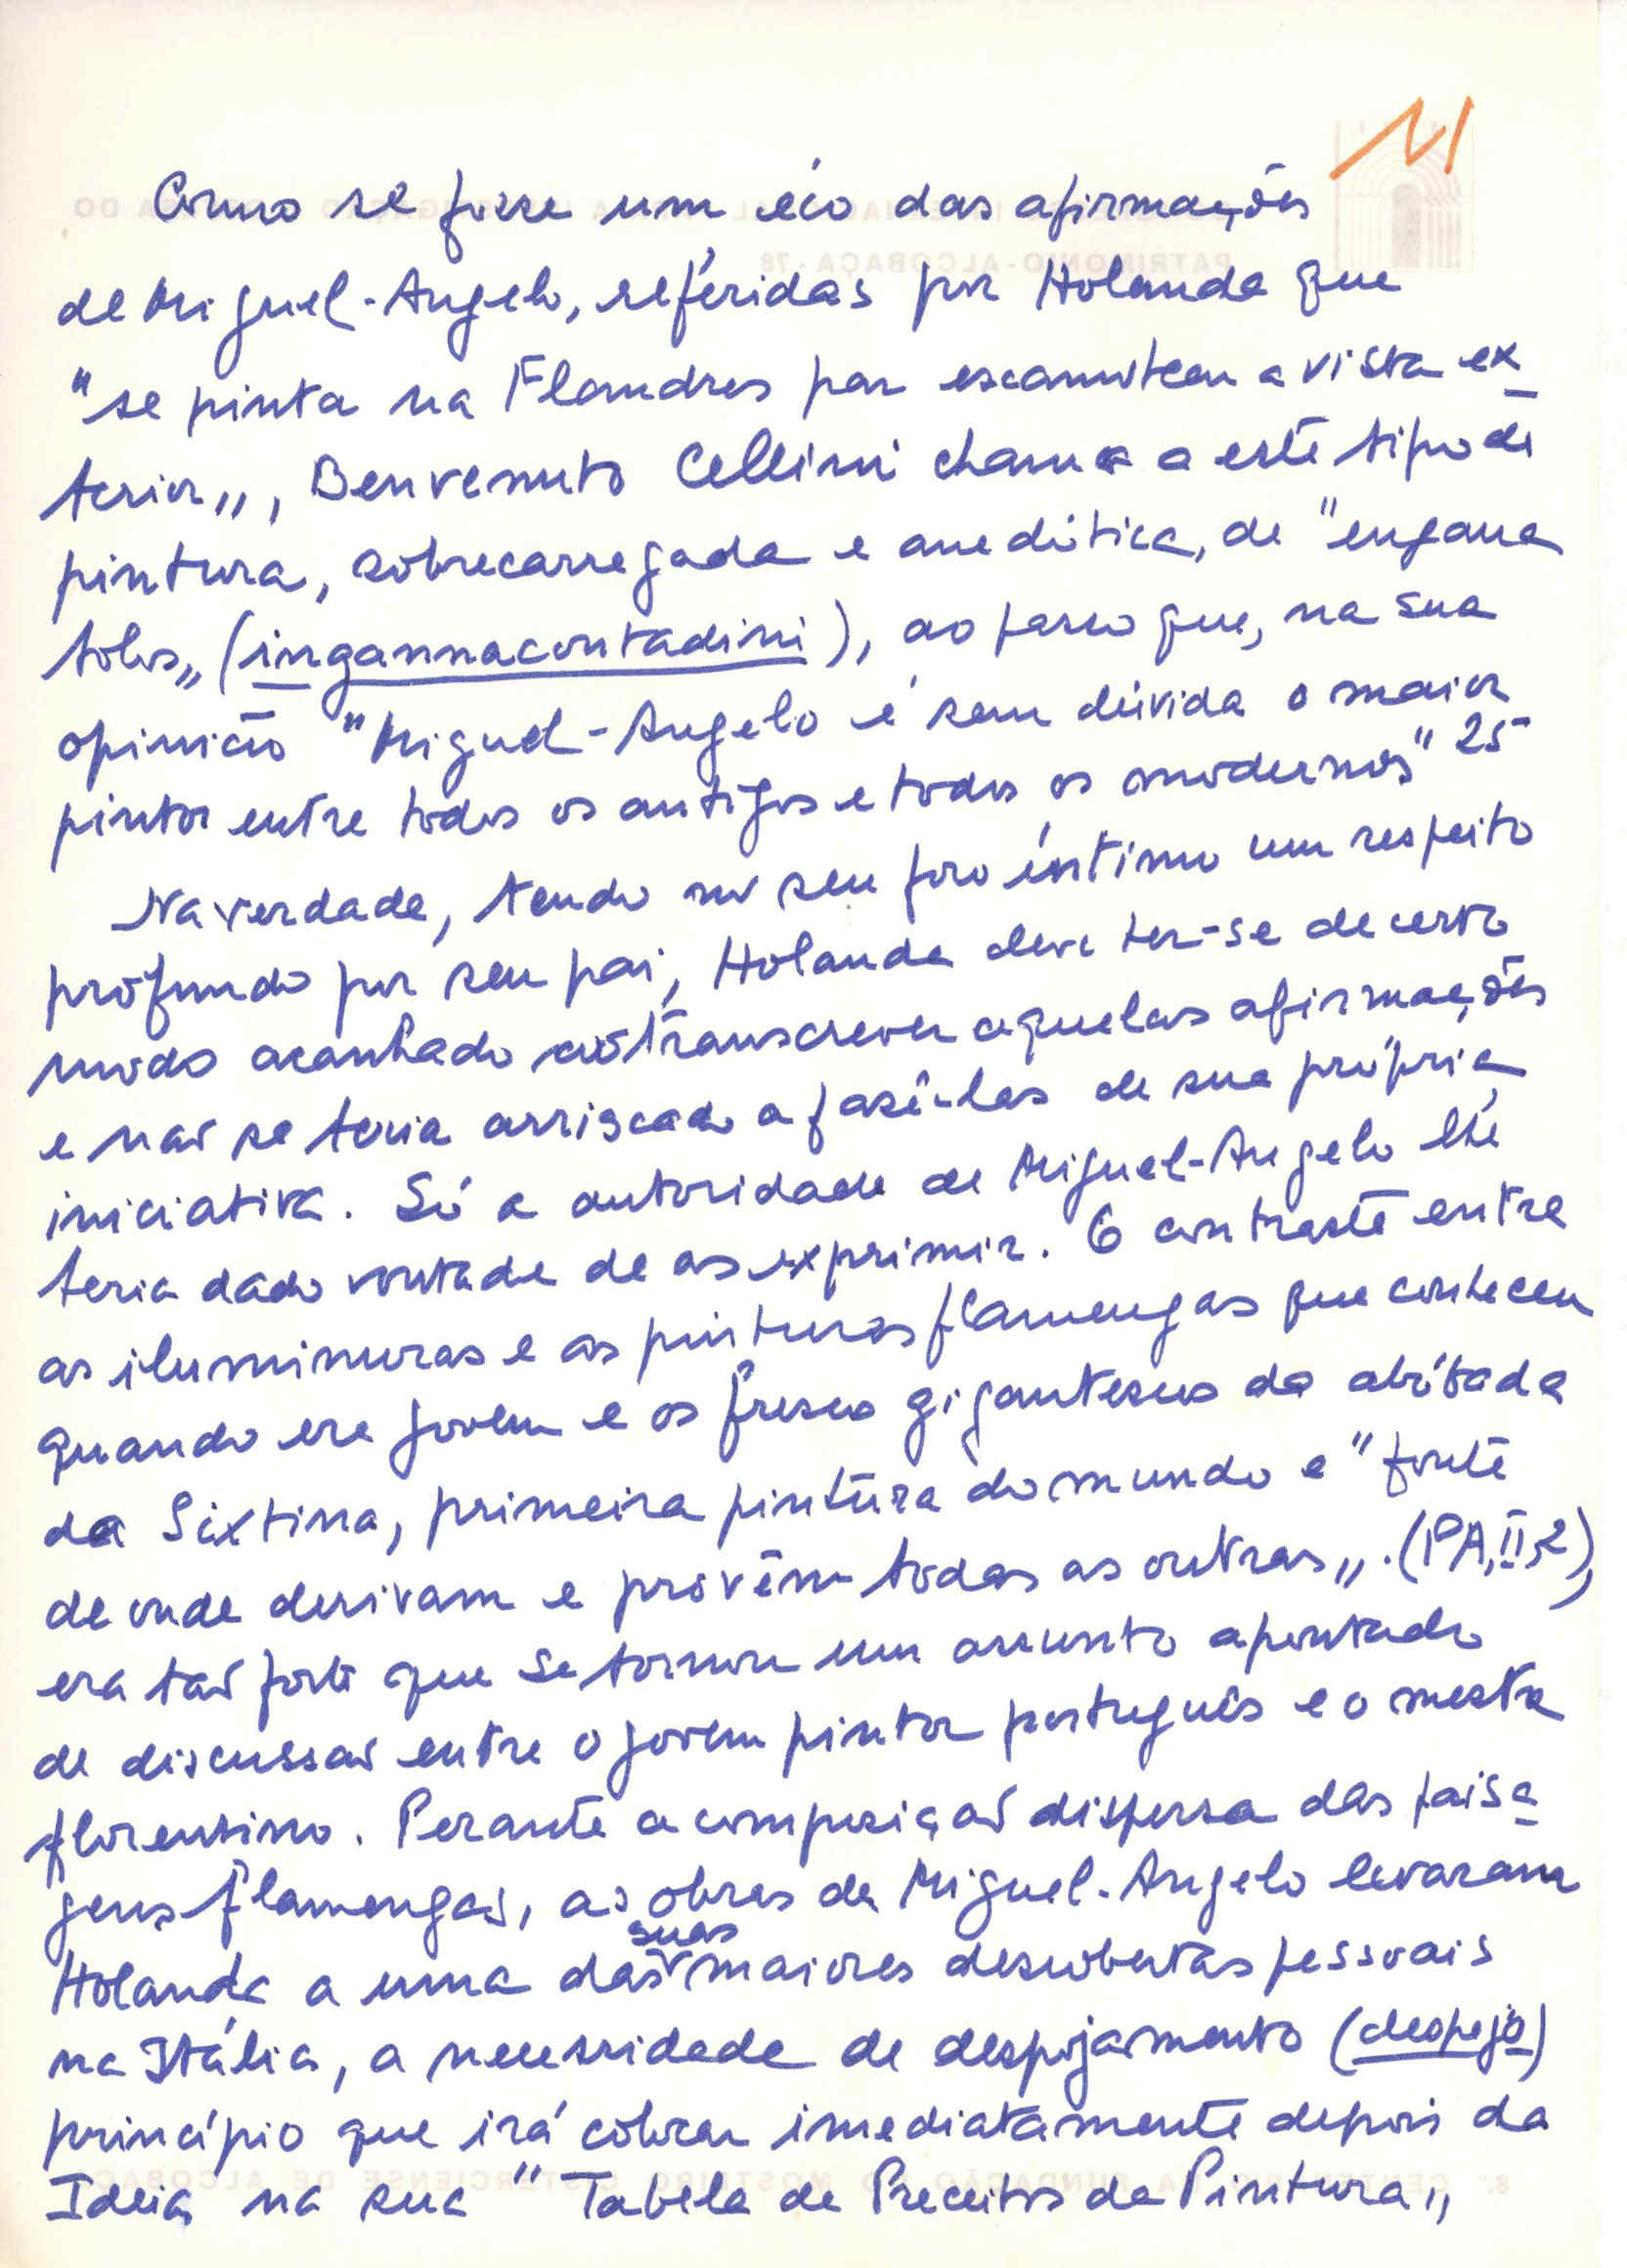 11
Como se fosse um éco das afirmações
de Miguel-Angelo, reféridas por Holanda que
"se pinta na Flandres par escamotear a vista ex_
terior,,, Benvenuto Cellini chama a este tipo de
pintura, sobrecarregada e anedótica, de "engana
tolos,, (ingannacontadini), ao passo que, na sua
opinião "Miguel-Angelo é sem dúvida o maior
pintor entre todos os antigos e todos os modernos" 25
Na verdade, tendo no seu foro íntimo um respeito
profundo por seu pai, Holanda deve ter-se de certo
modo acanhado ao transcrever aquelas afirmações
e não se teria arriscado a fazê-las de sua própria
iniciativa. Só a autoridade de Miguel-Angelo lhe
teria dado vontade de as exprimir. O contraste entre
as iluminuras e as pinturas flamengas que conheceu
quando era jovem e os frescos gigantescos da abóbada
da Sixtina, primeira pintura do mundo e "fonte
de onde derivam e provêm todas as outras,,. (PA, II, 2),
era tão forte que se tornou um assunto apontado
de discussão entre o jovem pintor português e o mestre
florentino. Perante a composição dispersa das paisa_
gens flamengas, as obras de Miguel-Angelo levaram
Holanda a uma das suas maiores descobertas pessoais
na Itália, a necessidade de despojamento (despejo)
princípio que irá colocar imediatamente depois da
Ideia, na sua "Tabela de Preceitos da Pintura,,